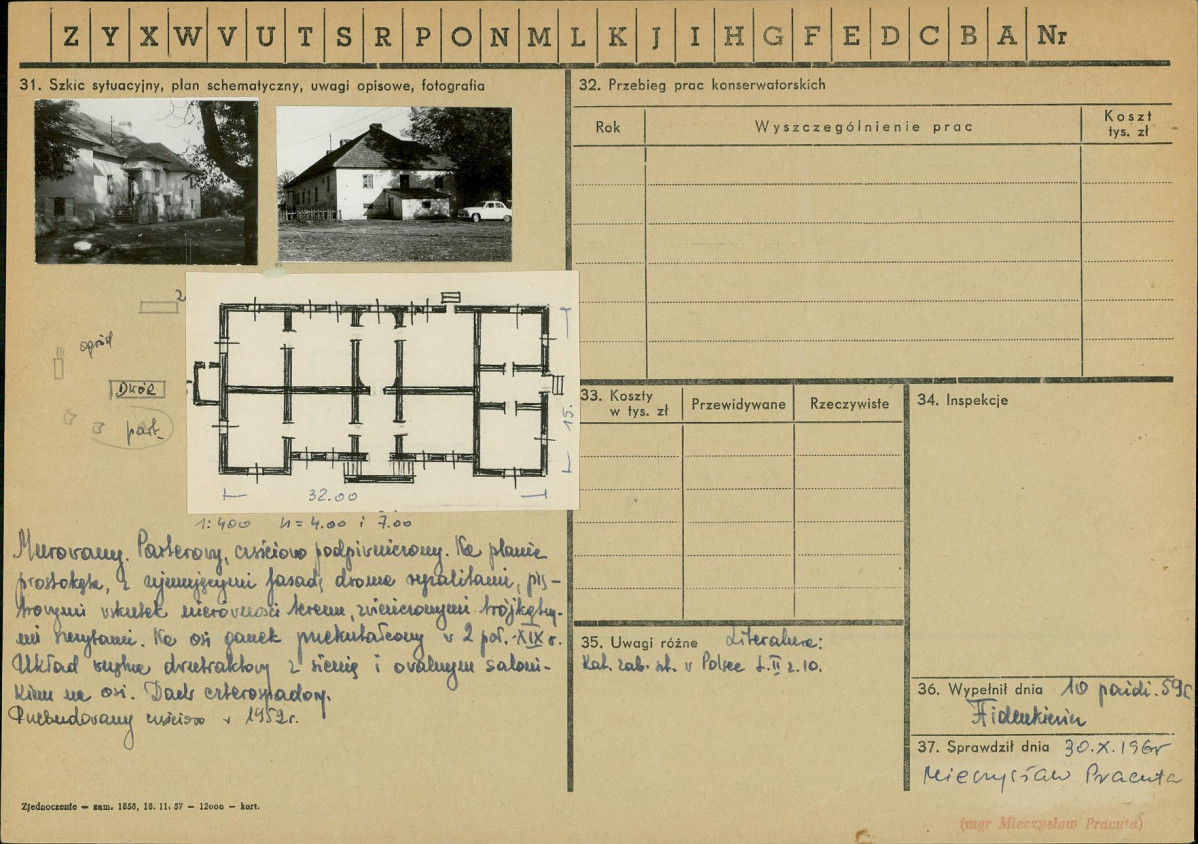 Z Y X W V U T S R P O N M L K J I H G F E D C B A Nr
31. Szkic sytuacyjny, plan schematyczny, uwagi opisowe, fotografia
2
ogród
DWÓR
park
15.
32.00
1:400 H = 4.00 i 7.00
Murowany. Parterowy, częściowo podpiwniczony. Na planie
prostokąta, z ujmującymi fasadę dwoma ryzalitami, pię-
trowymi wskutek nierówności terenu, zwieńczonymi trójkątny-
mi szczytami. Na osi ganek przekształcony w 2 poł. XIX w.
Układ wnętrz dwutraktowy z sienią i owalnym saloni-
kiem na osi. Dach czterospadowy.
Przebudowany częściowo w 1952 r.
Zjednoczenie — zam. 1858, 18. 11. 57 — 12000 — kart.
32. Przebieg prac konserwatorskich
Rok Wyszczególnienie prac Koszt
tys. zł
33. Koszty
w tys. zł Przewidywane Rzeczywiste
34. Inspekcje
35. Uwagi różne Literatura:
Kat. zab. szt. w Polsce t. II z. 10.
36. Wypełnił dnia 10 paźdz. 59r
37. Sprawdził dnia 30.X.196
Mieczysław Pracuta
(mgr Mieczysław Pracuta)